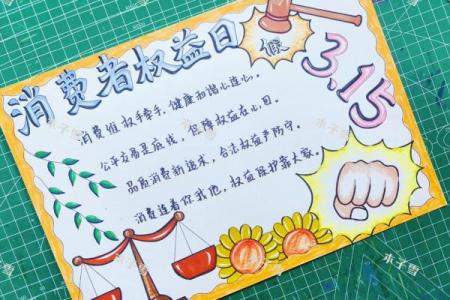 消费者权益日
假
3.15
消费维权牵手，健康和谐心连心。
公平交易是底线，保障权益在心目。
品质消费新追求，合法权益严防守。
消费连着你我他，权益维护靠大家。
木子雪